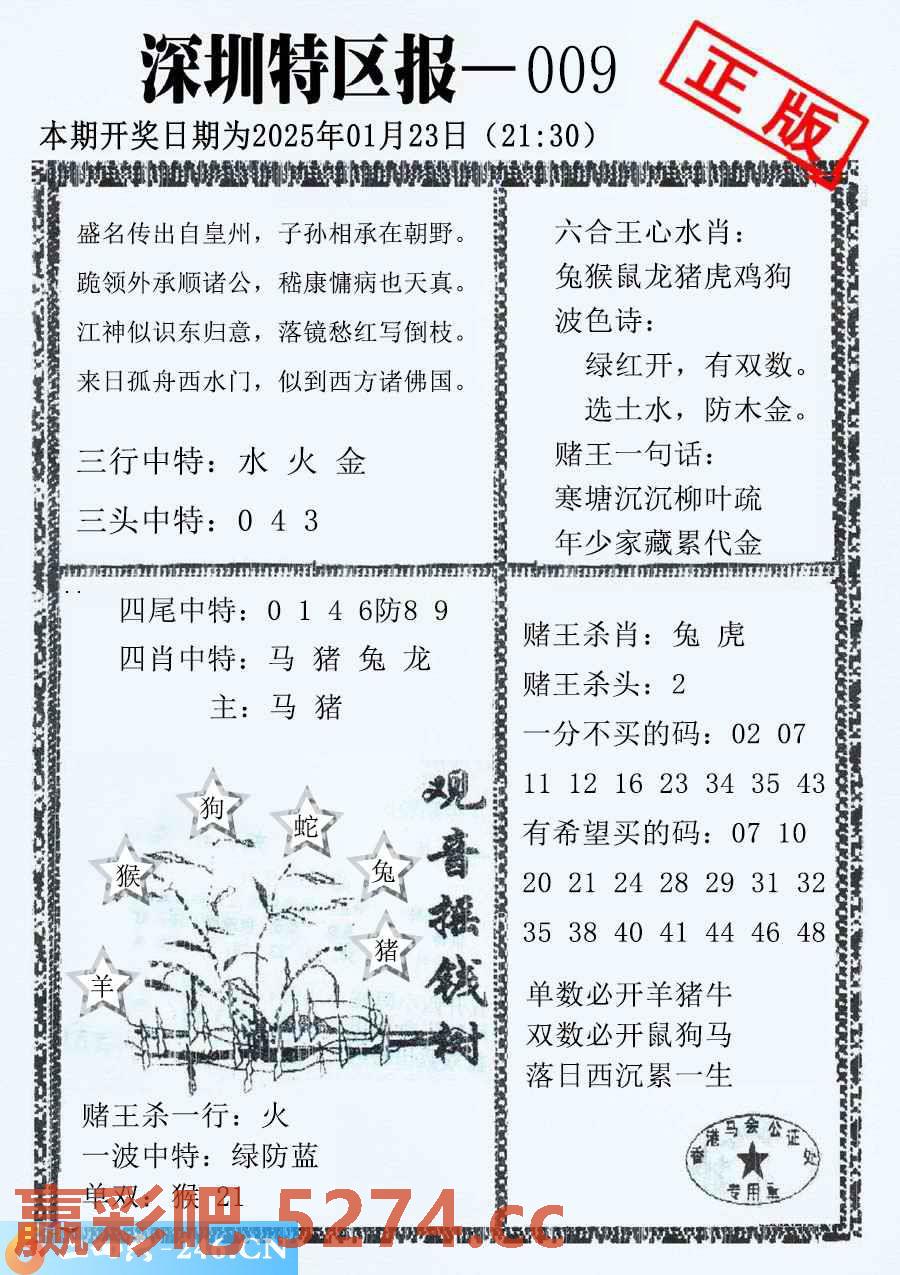 深圳特区报—009
正版
本期开奖日期为2025年01月23日（21:30）
盛名传出自皇州，子孙相承在朝野。
跪领外承顺诸公，嵇康慵病也天真。
江神似识东归意，落镜愁红写倒枝。
来日孤舟西水门，似到西方诸佛国。
三行中特：水 火 金
三头中特：0 4 3
六合王心水肖：
兔猴鼠龙猪虎鸡狗
波色诗：
绿红开，有双数。
选土水，防木金。
赌王一句话：
寒塘沉沉柳叶疏
年少家藏累代金
四尾中特：0 1 4 6防8 9
四肖中特：马 猪 兔 龙
主：马 猪
狗
蛇
猴
兔
猪
羊
观音摇钱树
赌王杀一行：火
一波中特：绿防蓝
单双：猴 21
赌王杀肖：兔 虎
赌王杀头：2
一分不买的码：02 07
11 12 16 23 34 35 43
有希望买的码：07 10
20 21 24 28 29 31 32
35 38 40 41 44 46 48
单数必开羊猪牛
双数必开鼠狗马
落日西沉累一生
香港马会公证处
专用章
赢彩吧 5274.cc
-246.CN